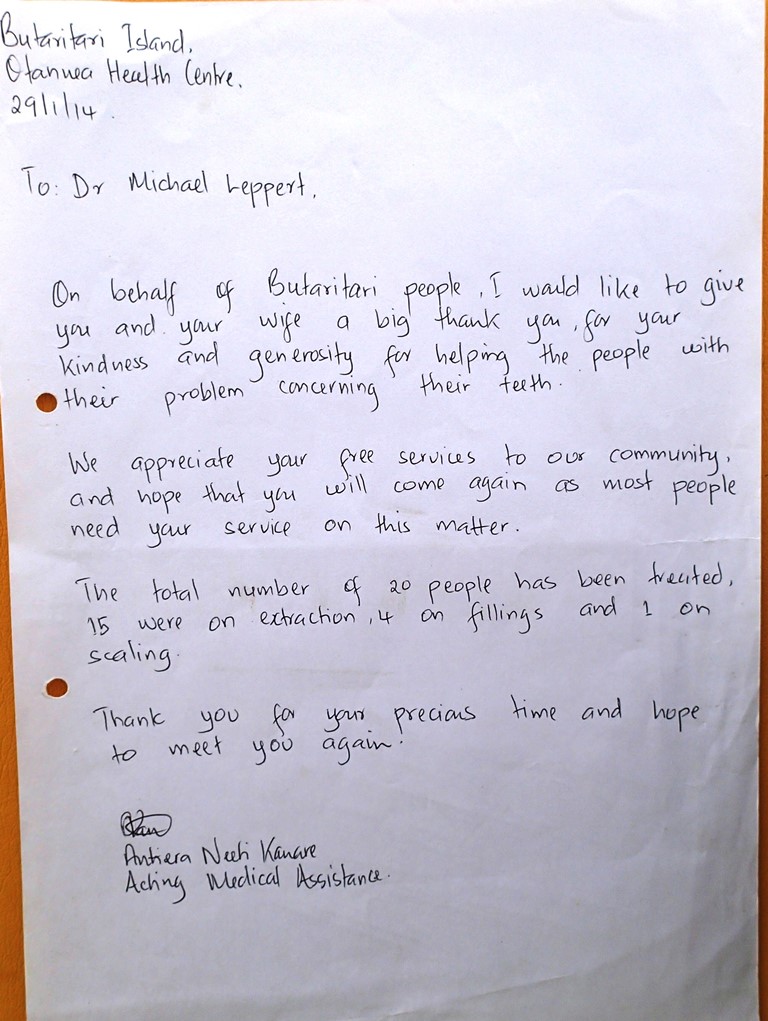 Butaritari Island,
Otanwea Health Centre.
29/1/14.
To: Dr Michael Leppert,
On behalf of Butaritari people, I would like to give
you and your wife a big thank you, for your
kindness and generosity for helping the people with
their problem concerning their teeth.
We appreciate your free services to our community,
and hope that you will come again as most people
need your service on this matter.
The total number of 20 people has been treated,
15 were on extraction, 4 on fillings and 1 on
scaling.
Thank you for your precious time and hope
to meet you again.
Antiera Neeti Kanare
Acting Medical Assistance.